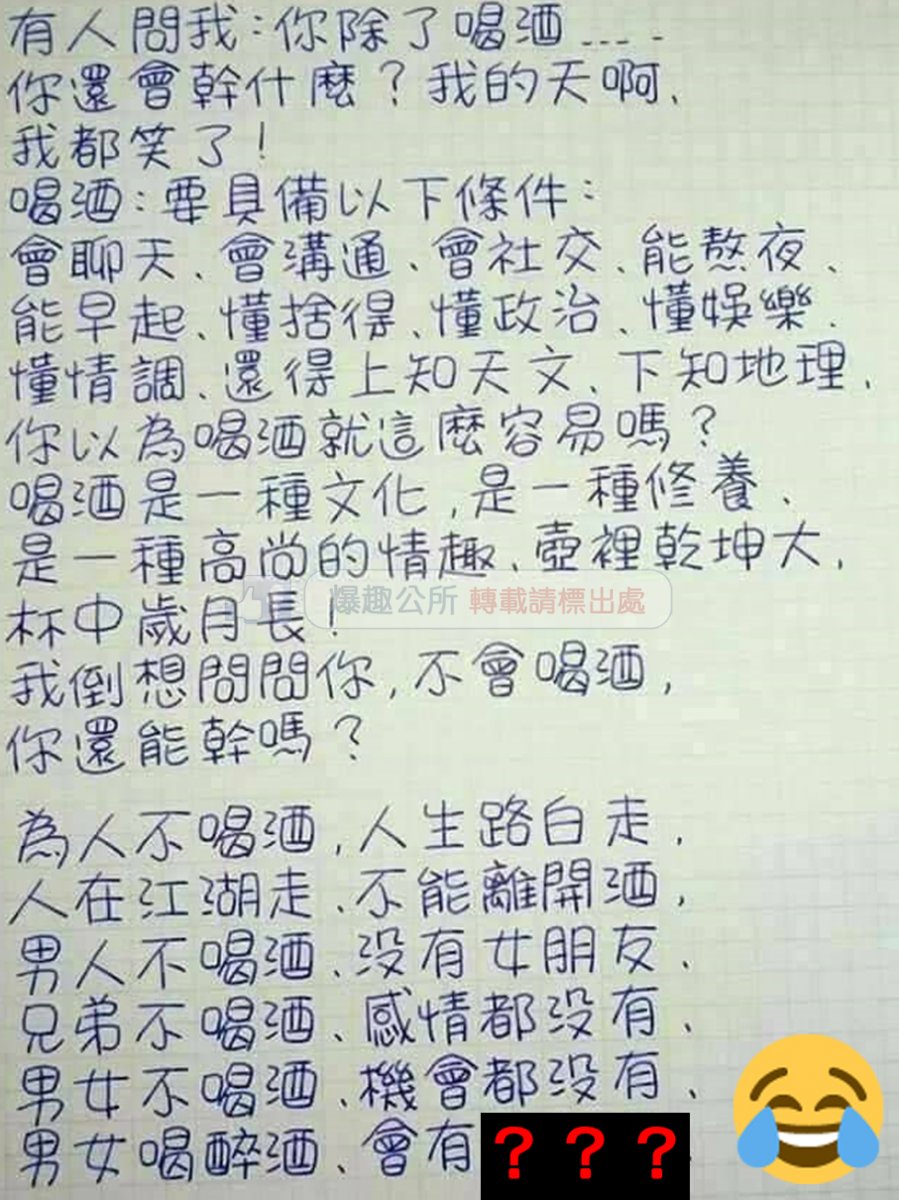 有人問我:你除了喝酒....
你還會幹什麼?我的天啊、
我都笑了!
喝酒:要具備以下條件:
會聊天、會溝通、會社交、能熬夜、
能早起、懂捨得、懂政治、懂娛樂、
懂情調、還得上知天文、下知地理、
你以為喝酒就這麼容易嗎?
喝酒是一種文化,是一種修養、
是一種高尚的情趣、壺裡乾坤大,
爆趣公所 轉載請標出處
杯中歲月長!
我倒想問問你,不會喝酒,
你還能幹嗎?
為人不喝酒,人生路白走,
人在江湖走、不能離開酒,
男人不喝酒、没有女朋友、
兄弟不喝酒、感情都没有、
男女不喝酒、機會都没有、
男女喝醉酒、會有???